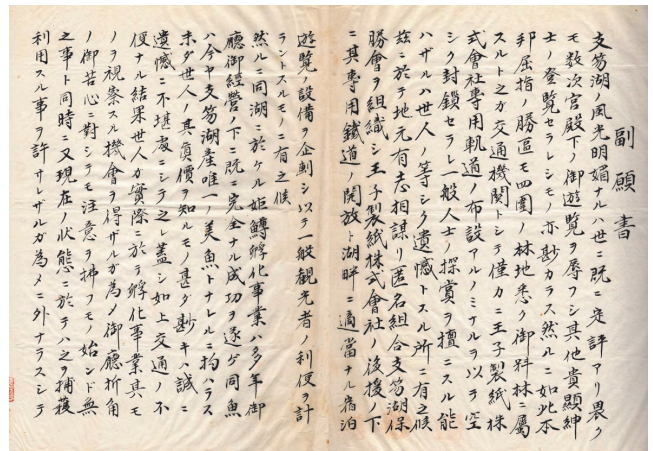 副願書
支笏湖ノ風光明媚ナルハ世ニ既ニ定評アリ畏ク
モ数次宮殿下ノ御遊覧ヲ辱フシ其他貴顕紳
士ノ登覧セラレシモノ亦尠カラス然ルニ如此本
邦屈指ノ勝區モ四圍ノ林地悉ク御料林ニ属
スルト之カ交通機関トシテ僅カニ王子製紙株
式會社専用軌道ノ布設アルノミナルヲ以テ空
シク封鎖セラレ一般人士ノ探賞ヲ擅ニスル能
ハザルハ世人ノ等シク遺憾トスル所ニ有之候
茲ニ於テ地元有志相謀リ匿名組合支笏湖保
勝會ヲ組織シ王子製紙株式會社ノ後援ノ下
ニ其専用鐵道ノ開放ト湖畔ニ適當ナル宿泊
遊覧ノ設備ヲ企劃シ以テ一般観光者ノ利便ヲ計
ラントスルモノニ有之候
然ルニ同湖ニ於ケル姫鱒孵化事業ハ多年御
廳御経營ノ下ニ既ニ完全ナル成功ヲ遂ゲ同魚
ハ今ヤ支笏湖産唯一ノ美魚トナレルニ拘ハラス
未ダ世人ノ其真價ヲ知ルモノ甚ダ尠キハ誠ニ
遺憾ニ不堪處ニシテ之レ蓋シ如上交通ノ不
便ナル結果世人ガ實際ニ於テ孵化事業其モ
ノヲ視察スル機會ヲ得ザルガ為メ御廳折角
ノ御苦心ニ對シテモ注意ヲ拂フモノ殆ンド無
之事ト同時ニ又現在ノ状態ニ於テハ之ヲ捕獲
利用スル事ヲ許サレザルガ為メニ外ナラスシテ